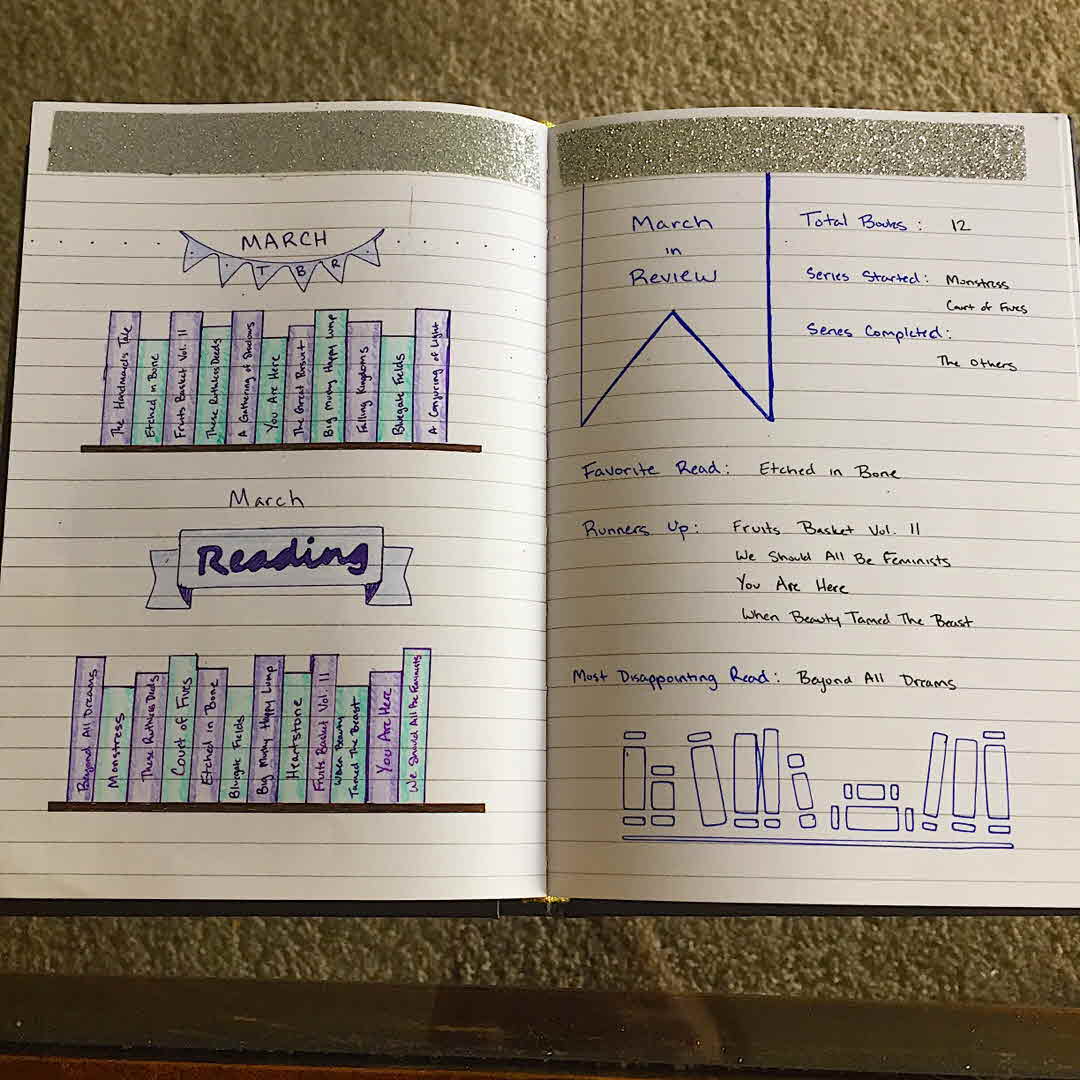 MARCH
TBR
The Handmaids Tale
Etched in Bone
Fruits Basket Vol. 11
These Ruthless Deeds
A Gathering of Shadows
You Are Here
The Great Pursuit
Big Mushy Happy Lump
Falling Kingdoms
Bluegate Fields
A Conjuring of Light
March
Reading
Beyond All Dreams
Monstress
These Ruthless Deeds
Court of Fives
Etched in Bone
Bluegate Fields
Big Mushy Happy Lump
Heartstone
Fruits Basket Vol. 11
When Beauty
Tamed The Beast
You Are Here
We Should All Be Feminists
March
in
Review
Total Books: 12
Series Started: Monstress
Court of Fives
Series Completed:
The Others
Favorite Read: Etched in Bone
Runners Up: Fruits Basket Vol. 11
We Should All Be Feminists
You Are Here
When Beauty Tamed The Beast
Most Disappointing Read: Beyond All Dreams